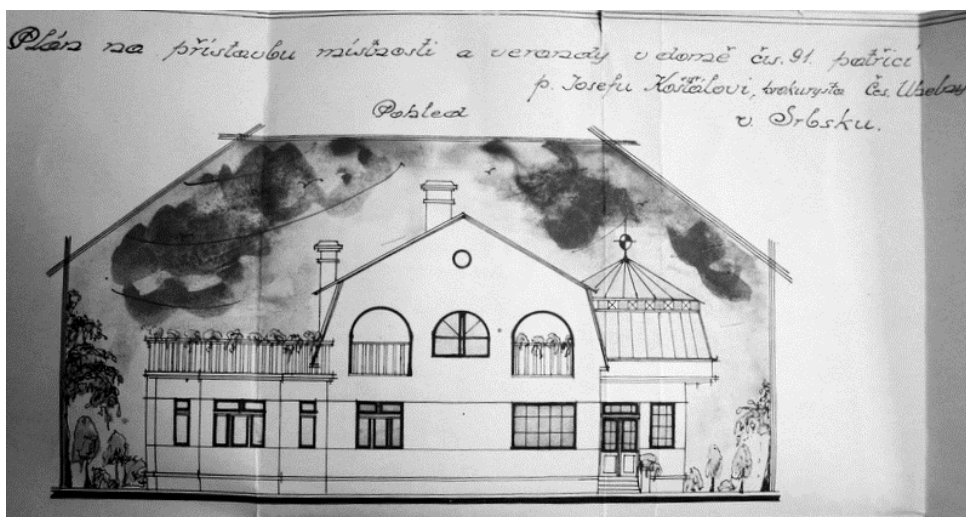 Plán na přístavbu místnosti a verandy v domě čís. 91. patřící
p. Josefu Košťálovi, prokurysta Čes. Unebanky
v. Srbsku.
Pohled